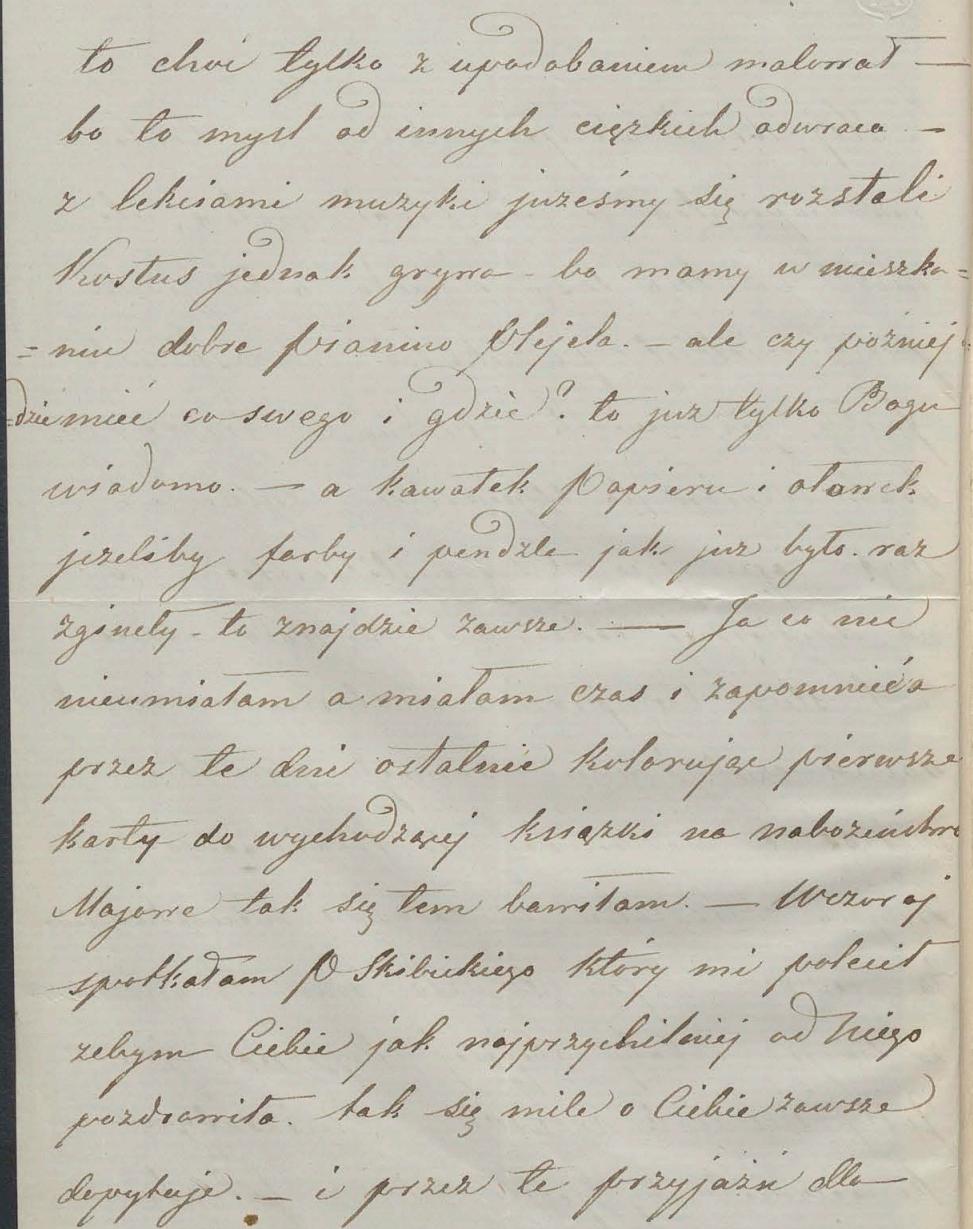 to choć tylko z upodobaniem malował —
bo to mysl od innych ciężkich odwraca —
z lekciami muzyki jużeśmy się rozstali
Kostus jednak grywa – bo mamy w mieszka=
=niu dobre pianino Plejela. – ale czy pozniej
=dzie mieć co swego i gdzie? to juz tylko Bogu
wiadomo. — a kawałek papieru i ołowek
jezeliby farby i pendzle jak juz było raz
zgineły – to znajdzie zawsze. — Ja co nic
nieumiałam a miałam czas i zapomnieć a
przez te dni ostatnie kolorując pierwsze
karty do wychodzącej książki na nabożeństwo
Majowe tak się tem bawiłam. — Wczoraj
spotkałam P Skibickiego który mi polecił
zebym Ciebie jak najprzychilniej od Niego
pozdrowiła. tak się mile o Ciebie zawsze
dopytuje. – i przez te przyjaźń dla